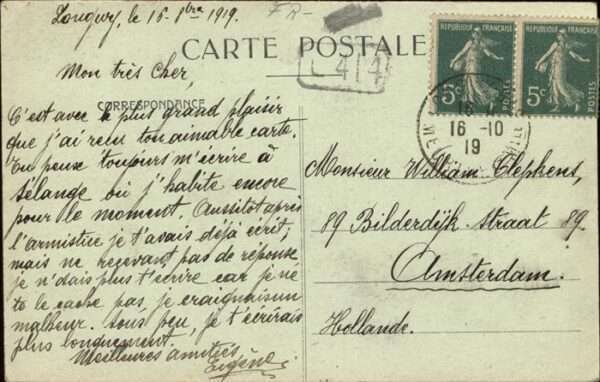 Longwy, le 16 - 8bre 1919.
FR-
CARTE POSTALE
L 414
Mon très cher,
CORRESPONDANCE
C'est avec le plus grand plaisir
que j'ai reçu ton aimable carte.
Tu peux toujours m'écrire à
Sélange où j'habite encore
pour le moment. Aussitôt après
l'armistice je t'avais déjà écrit;
mais ne recevant pas de réponse
je n'osais plus t'écrire car je ne
te le cache pas, je craignais un
malheur. Sous peu, je t'écrirais
plus longuement.
Meilleures amitiés
Eugène
REPUBLIQUE FRANÇAISE
5c
POSTES
REPUBLIQUE FRANÇAISE
5c
POSTES
16-10
19
Monsieur William Clephens,
89 Bilderdijk-Straat 89.
Amsterdam.
Hollande.